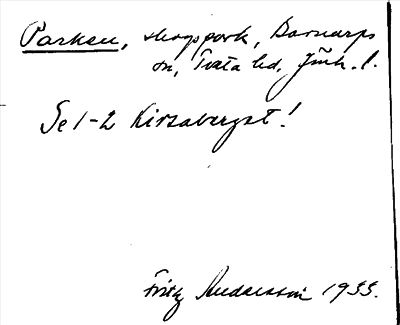 Parken, skogspark, Barnarps
sn, Tveta hd, Jönk. l.
Se 1-2 Kirsabergst!
Fritz Andersson 1935.